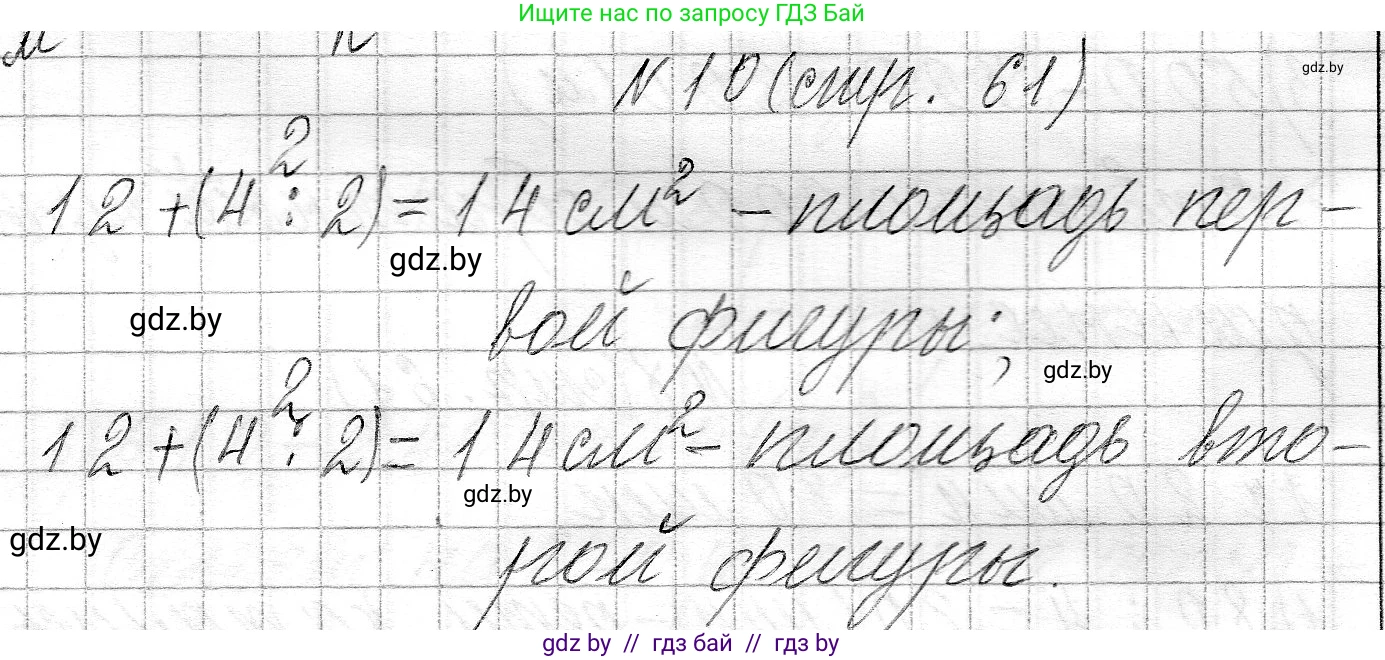 Ищите нас по запросу ГДЗ Бай
м n
N 10 (стр. 61)
gdz.by
2
12 + (4 : 2) = 14 см² – площадь пер-
gdz.by
gdz.by
вой фигуры;
gdz.by
2
12 + (4 : 2) = 14 см² – площадь вто-
gdz.by
gdz.by
рой фигуры.
gdz.by // гдз бай // gdz by